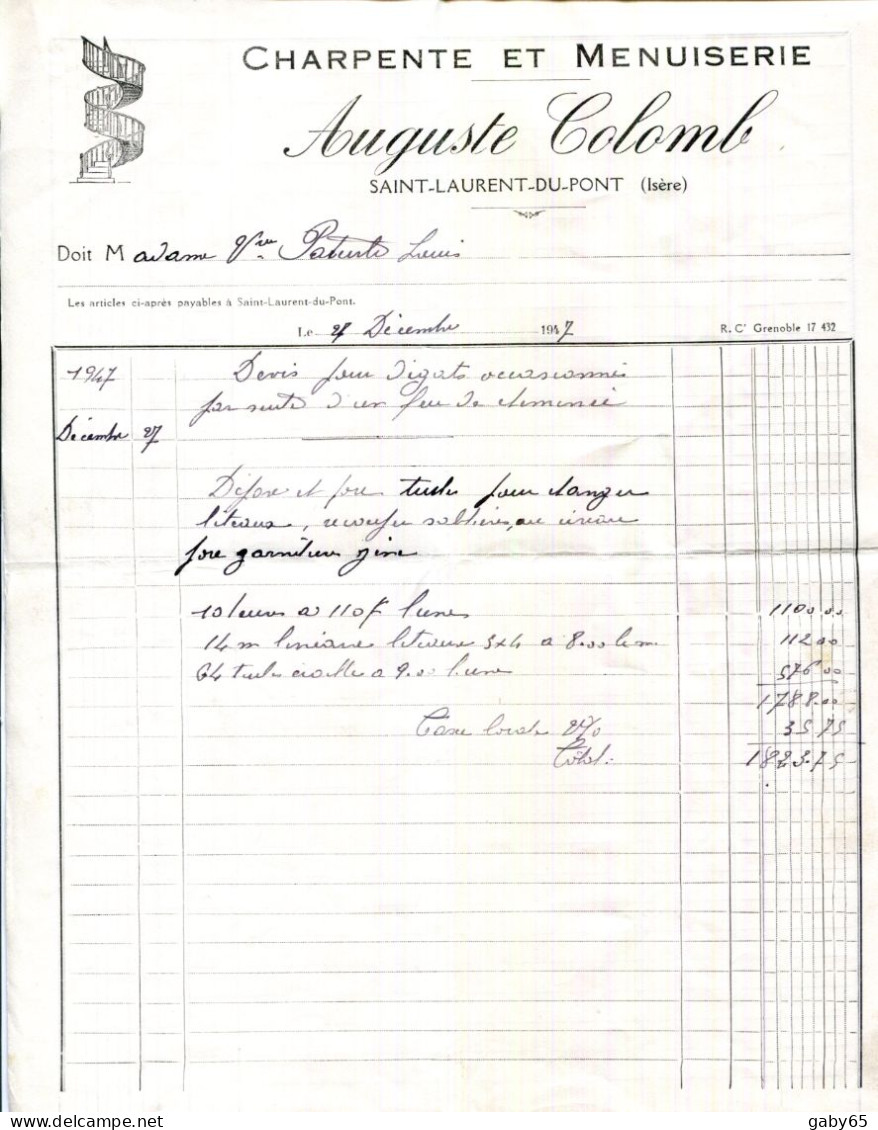 CHARPENTE ET MENUISERIE
Auguste Colomb
SAINT-LAURENT-DU-PONT (Isère)
Doit Madame Vve Louis
Les articles ci-après payables à Saint-Laurent-du-Pont.
Le 27 Décembre 1947
R. Cᵉ Grenoble 17 432
1947 Devis pour digats occasionnés
par suite d'un feu de cheminée
Décembre 27
Dépose et pose tuiles pour changer
liteaux, sablières, au niveau
pose garniture zinc
10 heures a 110F l'une 1100.00
14 m linéaire liteaux 3x4 a 8.00 le m 112 00
64 tuiles écaille a 9.00 l'une 576 00
1788.00
Taxe locale 2% 35 75
Total: 1823.75
gaby65